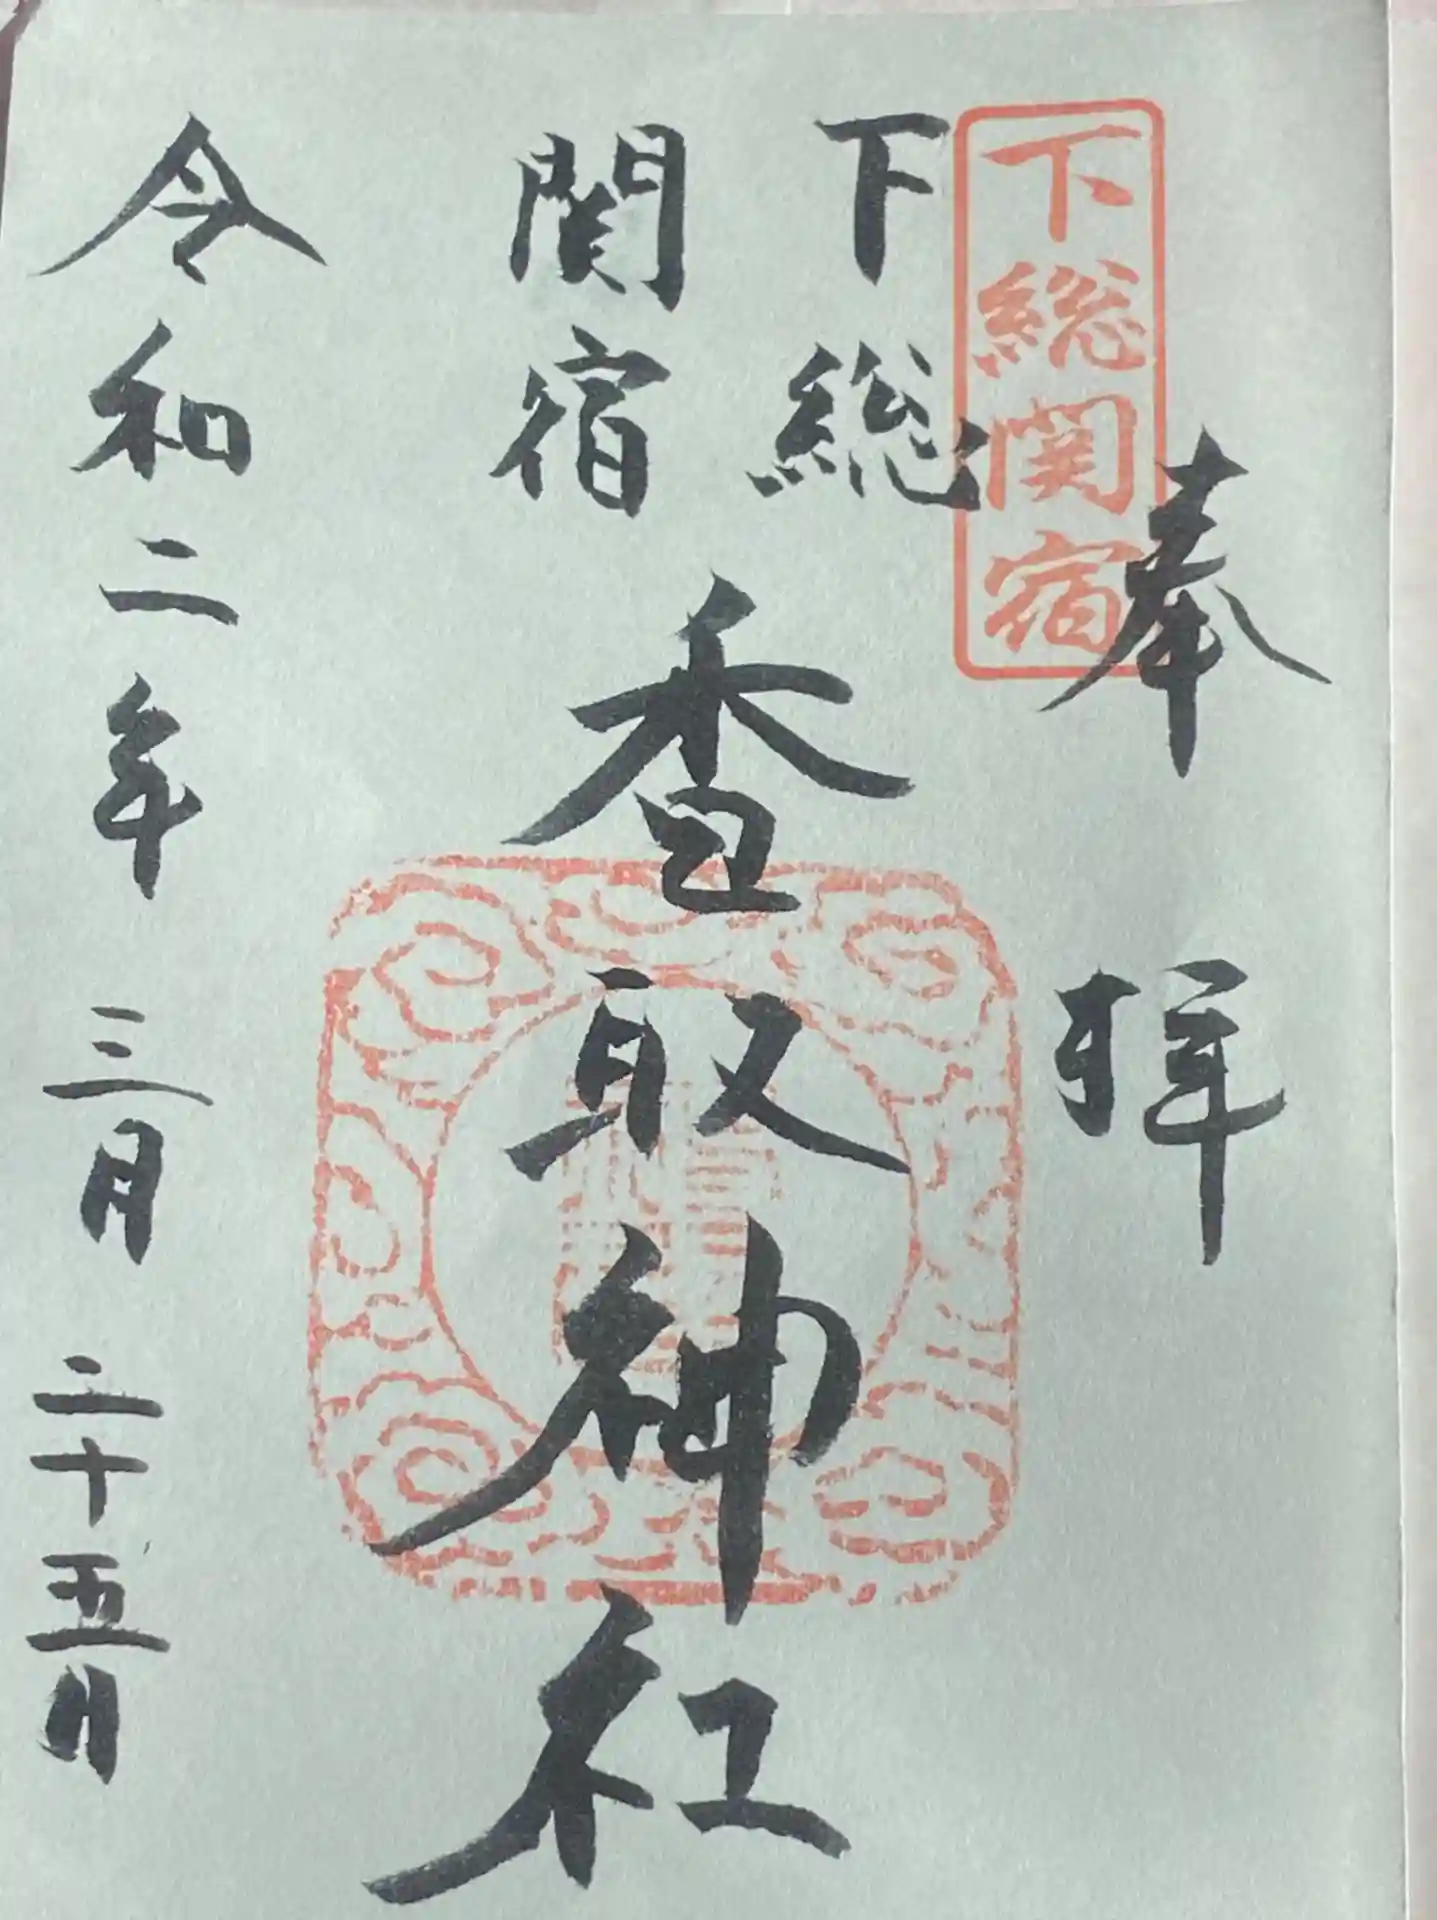 奉拝
下総関宿
下総
関宿
香取神社
令和二年三月二十五日